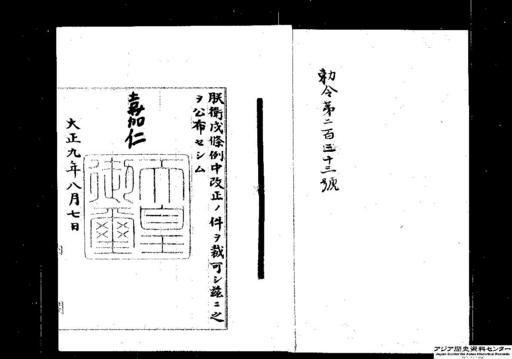 勅令第二百五十三號
朕衛戍條例中改正ノ件ヲ裁可シ茲ニ之
ヲ公布セシム
嘉仁
天皇
御璽
大正九年八月七日
アジア歴史資料センター
Japan Center for Asian Historical Records